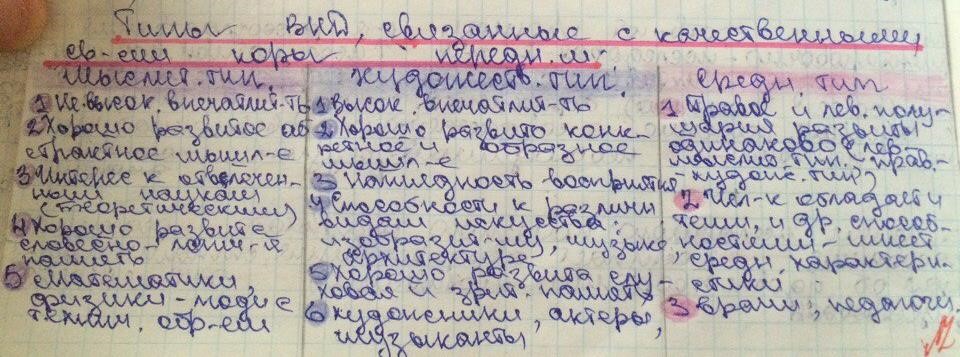 Типы ВНД, связанные с качественными
св-ми коры передн. м.
Мыслит. тип.
1 Невысок. впечатлит-ть
2 Хорошо развитое аб
страктное мышл-е
3 Интерес к отвлечен-
ным наукам
(теоретическим)
4 Хорошо развита
словесно-логич-я
память
5 Математики,
физики - люди с
техн. обр-ем
Художеств. тип.
1 Высок. впечатлит-ть
2 Хорошо развито конк-
ретное и образное
мышл-е
3 Наглядность восприятия
4 Способности к различн
видам искусства:
изобразит-му, музыке,
архитектуре
5 Хорошо развита слу-
ховая и зрит. память
6 художники, актеры,
музыканты
Средн. тип
1 Правое и лев. полу-
шария развиты
одинаково (лев-
мыслит. тип, прав-
худож. тип)
2 Чел-к обладает и
теми, и др. способ-
ностями - имеет
средн. характери-
стики
3 врачи, педагоги.